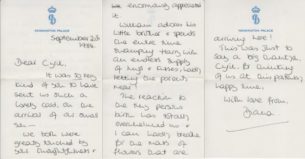 KENSINGTON PALACE
September 20th
1984.
Dear Cyril,
It was so very
kind of you to have
sent us such a
lovely card on the
arrival of our small
son —
We both were
greatly touched by
your thoughtfulness &
we enormously appreciated
it
William adores his
little brother & spends
the entire time
swamping Harry with
an endless supply
of hugs & kisses, hardly
letting the parents
near!
The reaction to
one tiny person's
birth has totally
overwhelmed us &
I can hardly breathe
for the mass of
flowers that are
arriving here!
This was just to
say a big thankyou,
Cyril, for thinking
of us at this particularly
happy time,
With love from,
Diana